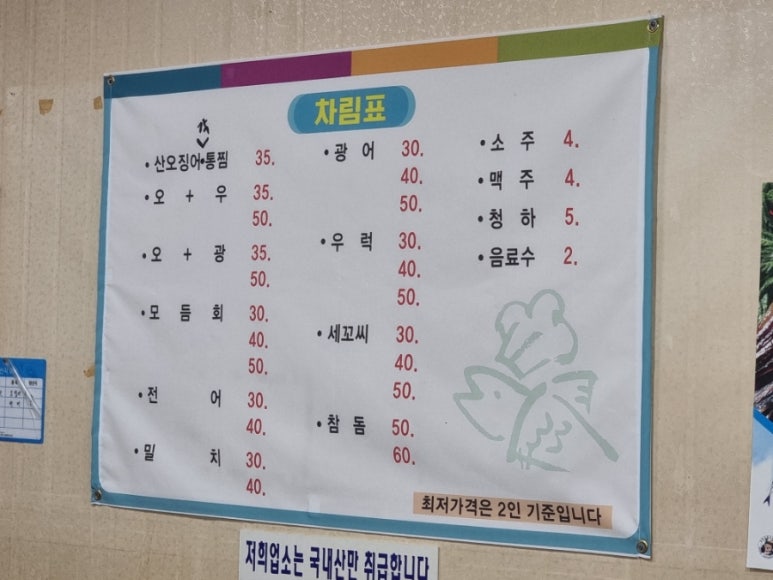 차림표
회
• 산오징어•통찜 35.
• 오 + 우 35.
50.
• 오 + 광 35.
50.
• 모 듬 회 30.
40.
50.
• 전 어 30.
40.
• 밀 치 30.
40.
• 광 어 30.
40.
50.
• 우 럭 30.
40.
50.
• 세꼬씨 30.
40.
50.
• 참 돔 50.
60.
• 소 주 4.
• 맥 주 4.
• 청 하 5.
• 음료수 2.
최저가격은 2인 기준입니다
저희업소는 국내산만 취급합니다